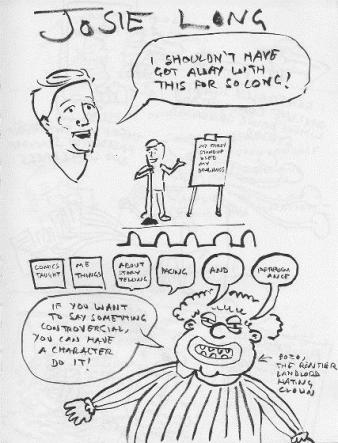 JOSIE LONG
I SHOULDN'T HAVE
GOT AWAY WITH
THIS FOR SO LONG!
MY EARLY
STANDUP
USED
MY
DRAWINGS
COMICS
TAUGHT
ME
THINGS
ABOUT
STORY
TELLING
PACING
AND
PERFORM
ANCE
IF YOU WANT
TO SAY SOMETHING
CONTROVERSIAL,
YOU CAN HAVE
A CHARACTER
DO IT!
BOZO,
THE RENTIER
LANDLORD
HATING
CLOWN